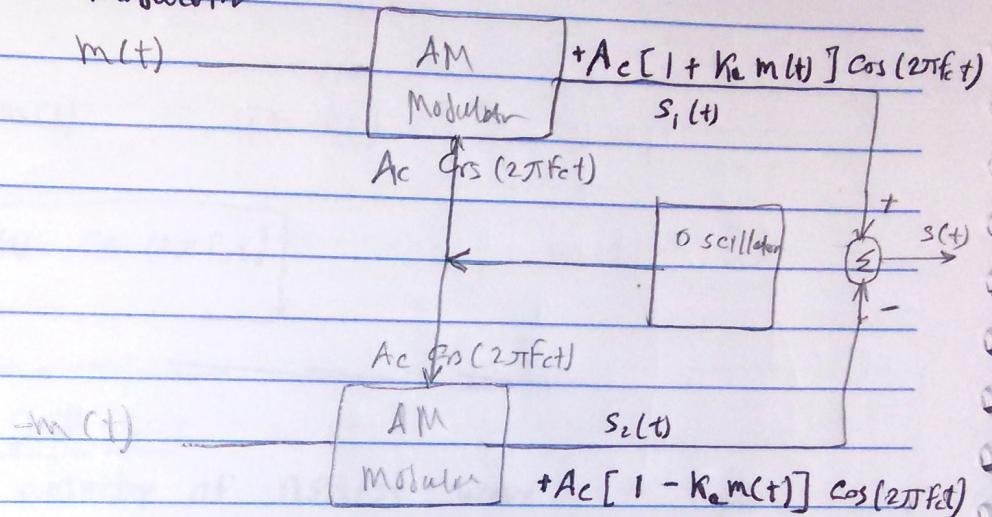 m(t)
AM
Modulator
+Ac[1 + Ka m(t)] Cos(2πfct)
s1(t)
Ac Cos (2πfct)
+
Oscillator
s(t)
Σ
-
Ac Cos(2πfct)
-m(t)
AM
Modulator
s2(t)
+Ac[1 - Ka m(t)] Cos(2πfct)